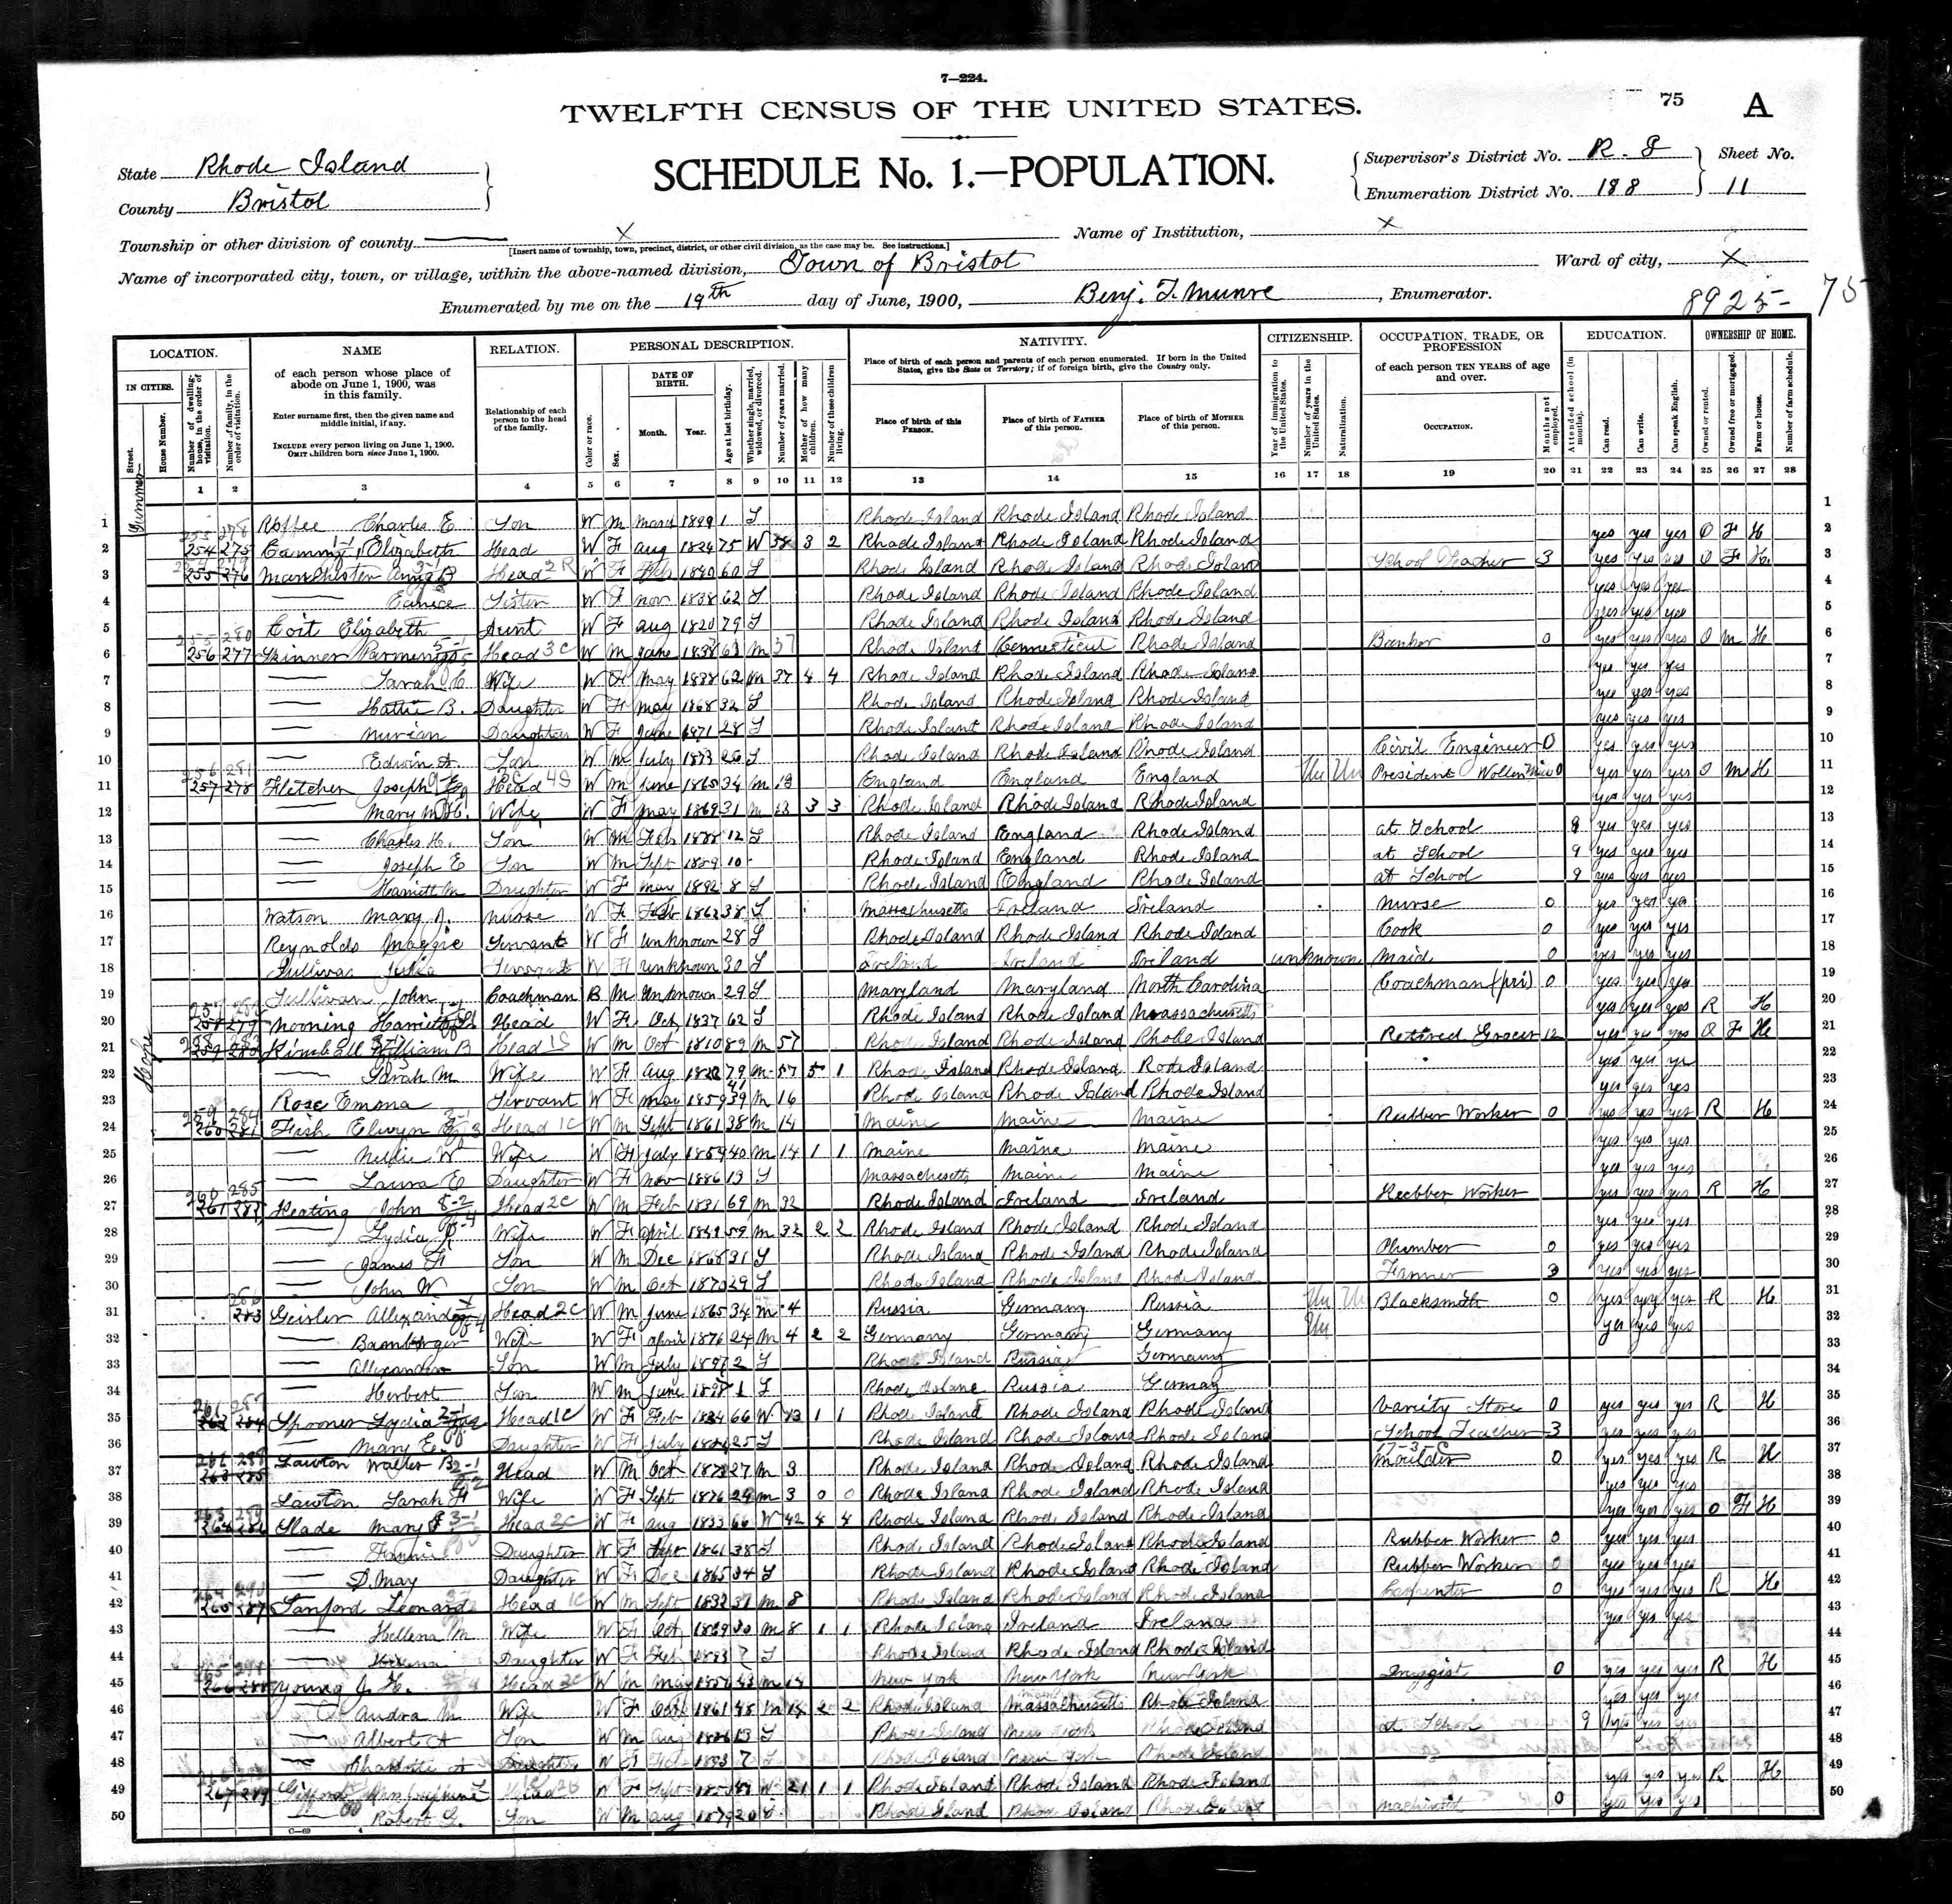 7—224.
TWELFTH CENSUS OF THE UNITED STATES.
75 A
SCHEDULE No. 1.—POPULATION.
State Rhode Island
County Bristol
Supervisor's District No. R. I Sheet No.
Enumeration District No. 188 11
Township or other division of county X Name of Institution, X
[Insert name of township, town, precinct, district, or other civil division, as the case may be. See instructions.]
Name of incorporated city, town, or village, within the above-named division, Town of Bristol Ward of city, X
Enumerated by me on the 19th day of June, 1900, Benj. T. Munro, Enumerator.
8925- 75
LOCATION. NAME RELATION. PERSONAL DESCRIPTION. NATIVITY. CITIZENSHIP. OCCUPATION, TRADE, OR PROFESSION EDUCATION. OWNERSHIP OF HOME.
IN CITIES. Street. House Number. Number of dwelling-house, in the order of visitation. Number of family, in the order of visitation.
of each person whose place of abode on June 1, 1900, was in this family.
Enter surname first, then the given name and middle initial, if any.
INCLUDE every person living on June 1, 1900.
OMIT children born since June 1, 1900.
Relationship of each person to the head of the family.
Color or race. Sex. DATE OF BIRTH. Month. Year. Age at last birthday. Whether single, married, widowed, or divorced. Number of years married. Mother of how many children. Number of these children living.
Place of birth of each person and parents of each person enumerated. If born in the United States, give the State or Territory; if of foreign birth, give the Country only.
Place of birth of this PERSON. Place of birth of FATHER of this person. Place of birth of MOTHER of this person.
Year of immigration to the United States. Number of years in the United States. Naturalization.
of each person TEN YEARS of age and over.
OCCUPATION. Months not employed.
Attended school (in months). Can read. Can write. Can speak English.
Owned or rented. Owned free or mortgaged. Farm or house. Number of farm schedule.
1 2 3 4 5 6 7 8 9 10 11 12 13 14 15 16 17 18 19 20 21 22 23 24 25 26 27 28
1 Charles E. Son W M 1 S Rhode Island Rhode Island Rhode Island
2 254 275 Elizabeth Head W F Aug 1824 75 W 38 3 2 Rhode Island Rhode Island Rhode Island yes yes yes O F H
3 255 276 Manchester Head W F 1840 60 S Rhode Island Rhode Island Rhode Island School Teacher 3 yes yes yes O F H
4 Eunice Sister W F Nov 1838 62 S Rhode Island Rhode Island Rhode Island yes yes yes
5 Coit Elizabeth Aunt W F Aug 1820 79 S Rhode Island Rhode Island Rhode Island yes yes yes
6 256 277 Skinner Head W M June 63 M 37 Rhode Island Connecticut Rhode Island Banker 0 yes yes yes O M H
7 Sarah C Wife W F May 1838 62 M 37 4 4 Rhode Island Rhode Island Rhode Island yes yes yes
8 Hattie B. Daughter W F May 1868 32 S Rhode Island Rhode Island Rhode Island yes yes yes
9 Daughter W F June 1871 28 S Rhode Island Rhode Island Rhode Island yes yes yes
10 Edwin A. Son W M July 1873 26 S Rhode Island Rhode Island Rhode Island Civil Engineer 0 yes yes yes
11 257 278 Fletcher Joseph E Head W M June 1865 34 M 13 England England England Un Un President Wollen Mill 0 yes yes yes O M H
12 Mary Wife W F May 1869 31 M 13 3 3 Rhode Island Rhode Island Rhode Island yes yes yes
13 Charles H. Son W M Feb 1888 12 S Rhode Island England Rhode Island at School 9 yes yes yes
14 Joseph E Son W M Sept 1889 10 Rhode Island England Rhode Island at School 9 yes yes yes
15 Harriett M Daughter W F May 1892 8 S Rhode Island England Rhode Island at School 9 yes yes yes
16 Watson Mary A. Nurse W F Feb 1862 38 S Massachusetts Ireland Ireland Nurse 0 yes yes yes
17 Reynolds Maggie Servant W F unknown 28 S Rhode Island Rhode Island Rhode Island Cook 0 yes yes yes
18 Sullivan Julia Servant W F unknown 30 S Ireland Ireland Ireland unknown Maid 0 yes yes yes
19 Sullivan John Coachman B M Unknown 29 S Maryland Maryland North Carolina Coachman (pri) 0 yes yes yes
20 258 279 Harriett Head W F Oct 1837 62 S Rhode Island Rhode Island Massachusetts yes yes yes R H
21 259 280 Kimball William B Head W M Oct 1810 89 M 57 Rhode Island Rhode Island Rhode Island Retired Grocer 12 yes yes yes O F H
22 Sarah M Wife W F Aug 79 M 57 5 1 Rhode Island Rhode Island Rode Island yes yes yes
23 Rose Emma Servant W F May 1859 M 16 Rhode Island Rhode Island Rhode Island yes yes yes
24 260 281 Fash Elwyn Head W M Sept 1861 38 M 14 Maine Maine Maine Rubber Worker 0 yes yes yes R H
25 Nellie W Wife W F July 1859 40 M 14 1 1 Maine Maine Maine yes yes yes
26 Laura E Daughter W F Nov 1886 13 S Massachusetts Maine Maine yes yes yes
27 261 282 Keating John Head W M Feb 1831 69 M 32 Rhode Island Ireland Ireland Rubber Worker yes yes yes R H
28 Lydia Wife W F April 59 M 32 2 2 Rhode Island Rhode Island Rhode Island yes yes yes
29 James F Son W M Dec 1868 31 S Rhode Island Rhode Island Rhode Island Plumber 0 yes yes yes
30 John W Son W M Oct 1870 29 S Rhode Island Rhode Island Rhode Island Farmer 3 yes yes yes
31 283 Geisler Allexander Head W M June 1865 34 M 4 Russia Germany Russia Un Un Blacksmith 0 yes yes yes R H
32 Wife W F April 1876 24 M 4 2 2 Germany Germany Germany Un yes yes yes
33 Allexander Son W M July 1897 2 S Rhode Island Russia Germany
34 Herbert Son W M June 1898 1 S Rhode Island Russia Germay
35 262 284 Spooner Lydia Head W F Feb 1834 66 W 1 1 Rhode Island Rhode Island Rhode Island Varity Store 0 yes yes yes R H
36 Mary E. Daughter W F July 25 S Rhode Island Rhode Island Rhode Island School Teacher 3 yes yes yes
37 263 285 Lawton Walter B Head W M Oct 27 M 3 Rhode Island Rhode Island Rhode Island Moulder 0 yes yes yes R H
38 Lawton Sarah F Wife W F Sept 1876 24 M 3 0 0 Rhode Island Rhode Island Rhode Island yes yes yes
39 264 286 Slade Mary Head W F Aug 1833 66 W 42 4 4 Rhode Island Rhode Island Rhode Island yes yes yes O F H
40 Fannie Daughter W F Sept 1861 38 S Rhode Island Rhode Island Rhode Island Rubber Worker 0 yes yes yes
41 D. May Daughter W F Dec 1865 34 S Rhode Island Rhode Island Rhode Island Rubber Worker 0 yes yes yes
42 265 287 Sanford Leonard Head W M Sept M 8 Rhode Island Rhode Island Rhode Island Carpenter 0 yes yes yes R H
43 Hellena M Wife W F Oct 1869 30 M 8 1 1 Rhode Island Ireland Ireland yes yes yes
44 Daughter W F Feb 1893 7 S Rhode Island Rhode Island Rhode Island
45 266 288 Young J. H. Head W M May 43 M 14 New York New York New York Druggist 0 yes yes yes R H
46 Wife W F Oct 1861 M 14 2 2 Rhode Island Massachusetts Rhode Island yes yes yes
47 Albert A Son W M Aug 1886 13 S Rhode Island New York Rhode Island at School 9 yes yes yes
48 Charlotte A Daughter W F 1893 7 S Rhode Island New York Rhode Island
49 267 289 Gifford Head W F Sept W 21 1 1 Rhode Island Rhode Island Rhode Island yes yes yes R H
50 Robert G. Son W M Aug 1879 20 S Rhode Island Rhode Island Rhode Island Machinist 0 yes yes yes